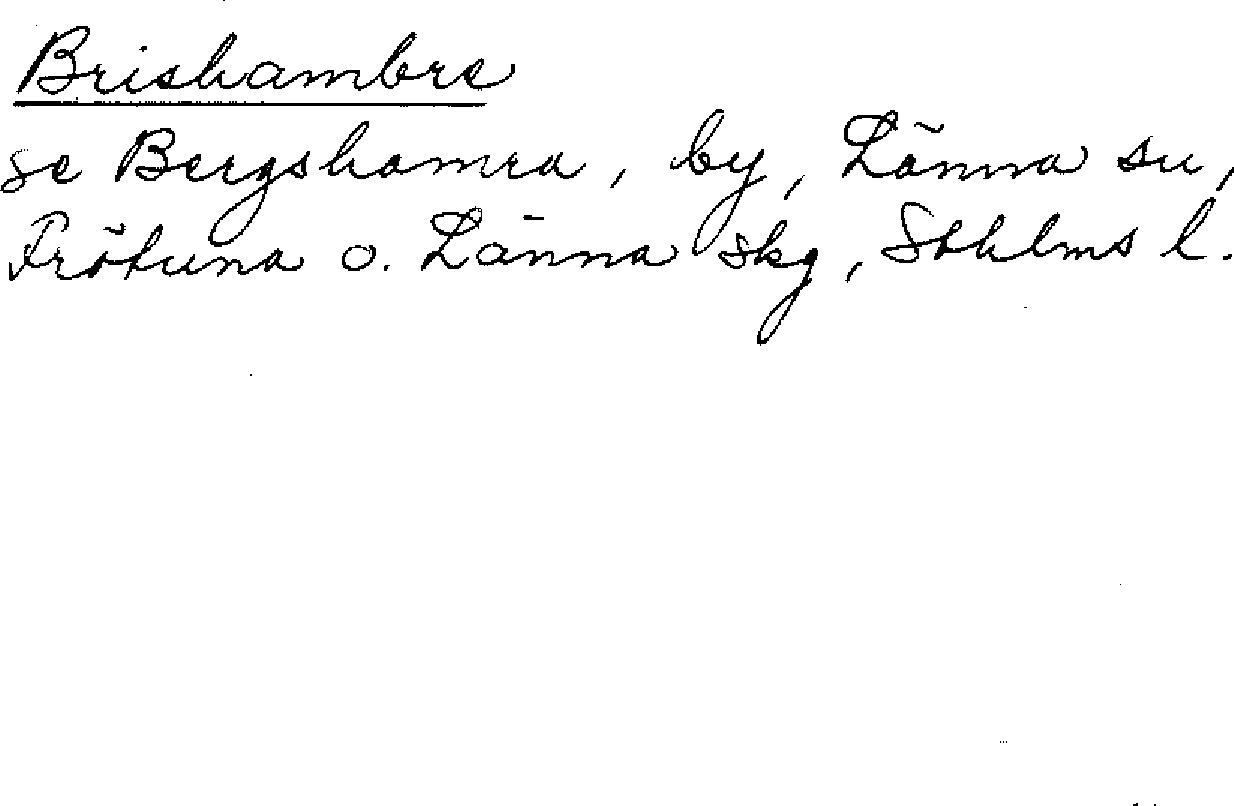 Brishambre
se Bergshamra, by, Länna sn,
Frötuna o. Länna skg, Sthlms l.